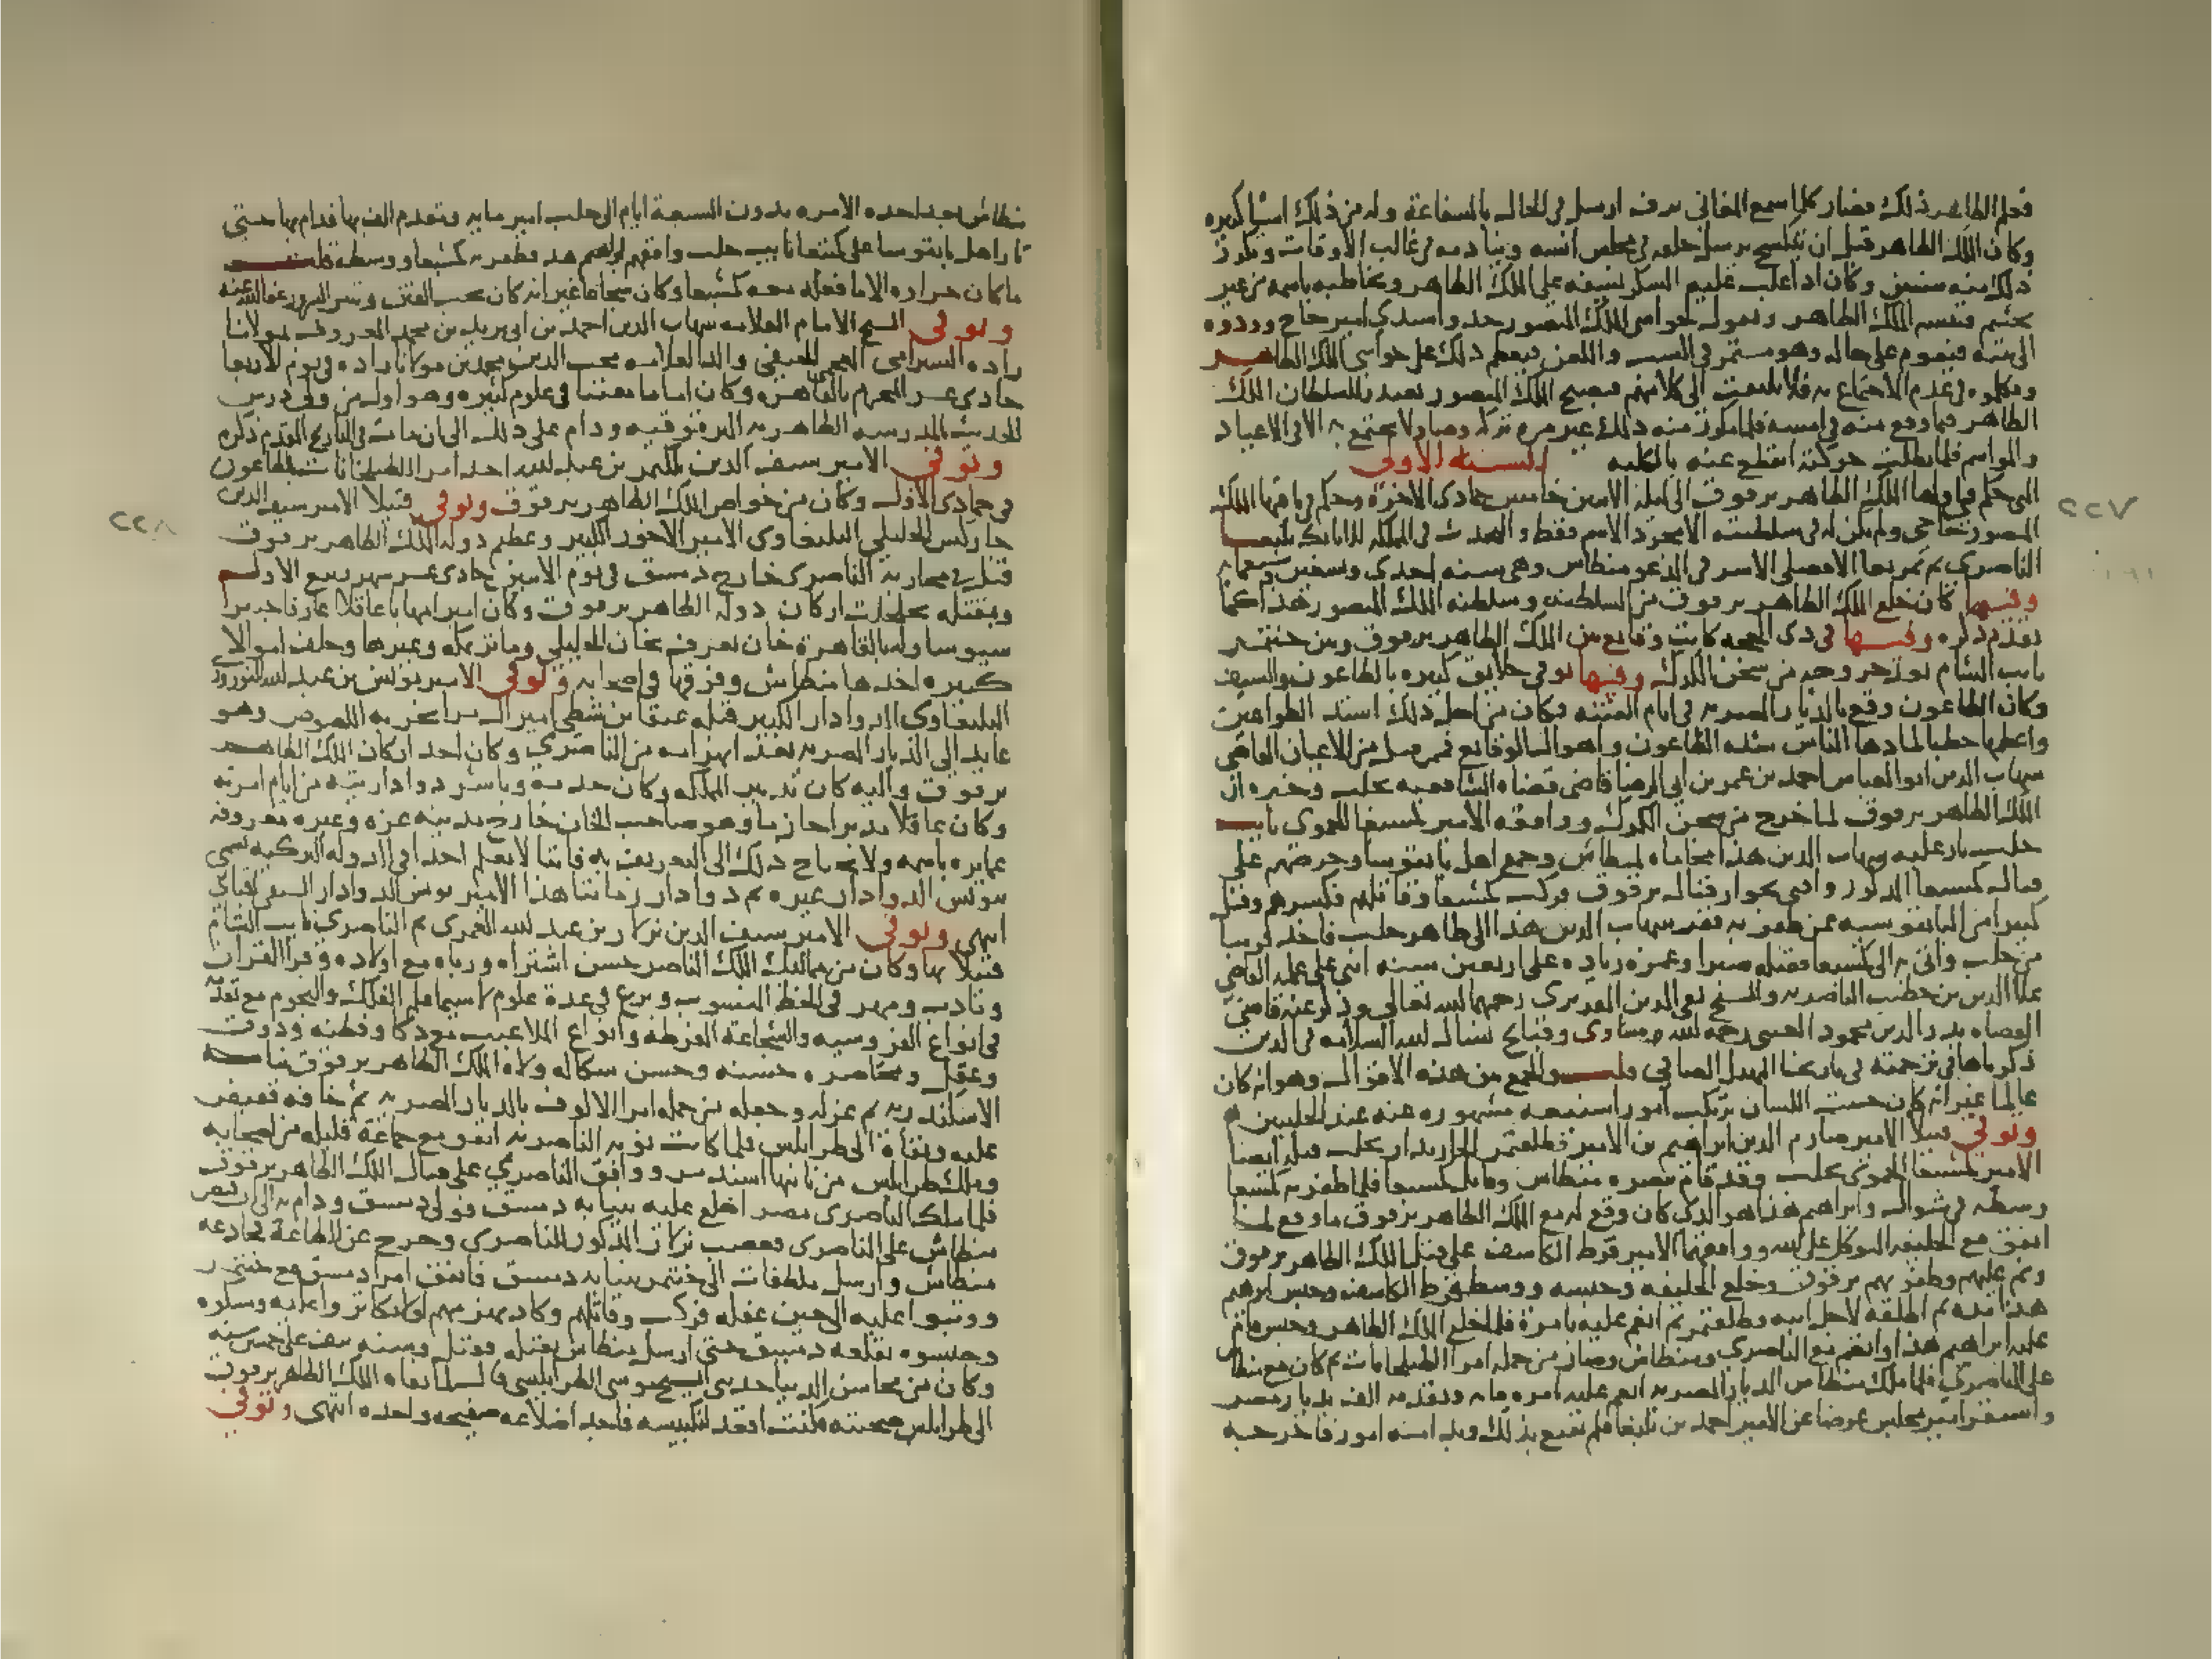 فعلم الظاهر ذلك فصار كلما سمع المغاني بزفه ارسل في الحال بالشفاعة وله من ذلك اشيا كثيره
وكان الملك الظاهر قبل ان يتكسح يرسل خلفه في مجلس انسه وينادمه في غالب الاوقات وتكرر
ذلك منه سنين وكان اذا غلب عليه السكر يسفه على الملك الظاهر ويخاطبه باسمه من غير
تحشم فيتبسم الملك الظاهر ويقول لخواص الملك المنصور خذوا سيدي امير حاج وردوه
الى بيته فيقوم على حاله وهو مستمر في السب واللعن فيعظم ذلك على حواشي الملك الظاهر
ويكلموه في عدم الاجتماع به فلا يلتفت الى كلامهم فيصبح الملك المنصور يعتذر للسلطان الملك
الظاهر فيما وقع منه في امسه فلما تكرر منه ذلك غير مره تركه وصار لا يجتمع به الا في الاعياد
والمواسم فلما بطلت حركته انقطع عنه بالكليه السنه الاولى
التي حكم في اولها الملك الظاهر برقوق الى ليله الاثنين خامس جمادى الاخرة وحكم في باقيها الملك
المنصور حاجي ولم يكن له في سلطنته الا مجرد الاسم فقط والمتحدث في المملكه الاتابك يلبغا
الناصري ثم تمربغا الافضلي الاشرفي المدعو منطاش وهي سنه احدى وتسعين وسبعمايه
وفيها كان خلع الملك الظاهر برقوق من السلطنه وسلطنه الملك المنصور هذا كما
تقدم ذكره وفيها في ذى الحجه كانت وقايع بين الملك الظاهر برقوق وبين جنتمر
نايب الشام بعد خروجه من سجن الكرك وفيها توفي خلايق كثيره بالطاعون والسيف
وكان الطاعون وقع بالديار المصريه في ايام الفتنه فكان من اجل ذلك اشد الطواعين
واعظمها خطبا لما دها الناس من شده الطاعون واهوال الوقايع فممن قتل من الاعيان القاضي
شهاب الدين ابو العباس احمد بن عمر بن ابي الرضا قاضي قضاه الشافعيه بحلب وخبره ان
الملك الظاهر برقوق لما خرج من سجن الكرك ووافقه الامير كمشبغا الحموي نايب
حلب ثار عليه شهاب الدين هذا محاماه لمنطاش وجمع اهل بانقوسا وحرضهم على
قتال كمشبغا المذكور وافتى بجواز قتال برقوق فركب كمشبغا وقاتلهم فكسرهم وقتل
كثيرا من البانقوسيه ممن ظفر به ففر شهاب الدين هذا الى ظاهر حلب فاخذ قريبا
من حلب واتي به الى كمشبغا فقتله صبرا وعمره زياده على اربعين سنه اثنى على علمه القاضي
علا الدين بن خطيب الناصريه والشيخ تقي الدين المقريزي رحمهما الله تعالى وذكر عنه قاضي
القضاه بدر الدين محمود العيني رحمه الله مساوى وقبايح نسال الله السلامه في الدين
ذكرناها في ترجمته في تاريخنا المنهل الصافي قلت والجمع من هذه الاقوال وهو انه كان
عالما غير انه كان خبيث اللسان يرتكب امور اشنيعه مشهوره عنه عند الحلبيين
وتوفي قتيلا الامير صارم الدين ابراهيم بن الامير قطلقتمر الخازندار بحلب قتله ايضا
الامير كمشبغا الحموي بحلب وقد قام بنصره منطاش وقاتل كمشبغا فلما ظفر به كمشبغا
وسطه في شوال وابراهيم هذا هو الذي كان وقع له مع الملك الظاهر برقوق ما وقع لما
اتفق مع الخليفه المتوكل على الله ووافقهما الامير قرط الكاشف على قتل الملك الظاهر برقوق
ونم عليهم وظفر بهم برقوق وخلع الخليفه وحبسه ووسط قرط الكاشف وحبس ابراهيم
هذا مده ثم اطلقه لاجل ابيه قطلقتمر ثم انعم عليه بامرة فلما خلع الملك الظاهر وحبس قام
عليه ابراهيم هذا واتفق مع الناصري ومنطاش وصار من جمله امرا الطبلخانات ثم كان مع منطاش
على الناصري فلما ملك منطاش الديار المصريه انعم عليه بامره مايه وتقدمه الف بديار مصر
واستقر امير مجلس عوضا عن الامير احمد بن يلبغا فلم يقنع بذلك وبدا منه امور فاخرجه
منطاش بعد اخذه الامره بدون السبعة ايام الى حلب امير مايه ومقدم الف بها فدام بها حتى
ثار اهل بانقوسا على كمشبغا نايب حلب وافقهم ابراهيم هذا فظفر به كمشبغا ووسطه قلت
ما كان جزاوه الا ما فعله معه كمشبغا وكان شجاعا غير انه كان يحب الفتن وتثير الشرور عفا الله عنه
وتوفي الشيخ الامام العلامه شهاب الدين احمد بن ابي يزيد بن محمد المعروف بمولانا
زاده السيرامي العجمي الحنفي والد العلامه محب الدين محمد بن مولانا زاده في يوم الاربعا
حادي عشر المحرم بالقاهرة وكان اماما مفتنا في علوم كثيره وهو اول من ولي درس
الحديث بالمدرسه الظاهريه البرقوقيه ودام على ذلك الى ان مات في التاريخ المتقدم ذكره
وتوفي الامير سيف الدين بلكتمر بن عبد الله احد امرا الطبلخانات بالطاعون
في جمادى الاولى وكان من خواص الملك الظاهر برقوق وتوفي قتيلا الامير سيف الدين
جاركس الخليلي اليلبغاوي الامير الاخور الكبير وعظيم دولة الملك الظاهر برقوق
قتل في محاربة الناصري خارج دمشق في يوم الاثنين حادى عشر شهر ربيع الاول
وبقتله تخلخلت اركان دولة الظاهر برقوق وكان اميرا مهابا عاقلا عارفا خبيرا
سيوسا وله بالقاهرة خان يعرف بخان الخليلي وماثر بمكه وغيرها وخلف اموالا
كثيره اخذها منطاش وفرقها في اصحابه وتوفي الامير يونس بن عبد الله النوروزي
اليلبغاوي الدوادار الكبير قتله عنقا بن شطي امير ال مرا بخربه اللصوص وهو
عايد الى الديار المصريه بعد انهزامه من الناصري وكان احد اركان الملك الظاهر
برقوق واليه كان تدبير المملكه وكان خدمه وباشر دواداريته من ايام امرته
وكان عاقلا مدبرا حازما وهو صاحب الخان خارج مدينه غزه وغيره معروفه
عمايره باسمه ولا يحتاج ذلك الى التعريف به فاننا لا نعلم احدا في الدوله التركيه سمي
بيونس الدوادار غيره ثم دوادار زماننا هذا الامير يونس الدوادار السيفي اقباي
انتهى وتوفي الامير سيف الدين بزلار بن عبد الله العمري ثم الناصري نايب الشام
قتيلا بها وكان من مماليك الملك الناصر حسن اشتراه ورباه مع اولاده وقرا القران
وتادب ومهر في الخط المنسوب وبرع في عدة علوم لا سيما علم الفلك والنجوم مع تقدمه
في انواع الفروسيه والشجاعة المفرطه وانواع الملاعيب مع ذكا وفطنه وذوق
وعقل ومحاضره حسنه وحسن شكاله ولاه الملك الظاهر برقوق نيابه
الاسكندريه ثم عزله وجعله من جمله امرا الالوف بالديار المصريه ثم خافه فقبض
عليه ونفاه الى طرابلس فلما كانت نوبه الناصريه اتفق مع جماعة قليله من اصحابه
وملك طرابلس من نايبها اسندمر ووافق الناصري على قتال الملك الظاهر برقوق
فلما ملك الناصري مصر اخلع عليه بنيابه دمشق فولي دمشق ودام به الى ان قبض
منطاش على الناصري فعصب بزلار المذكور للناصري وخرج عن الطاعة فخادعه
منطاش وارسل ملطفات الى جنتمر بنيابه دمشق فاتفق امرا دمشق مع جنتمر
ووثبوا عليه الى حين غفله فركب وقاتلهم وكاد يهزمهم لولا تكاثروا عليه ومسكوه
وحبسوه بقلعه دمشق حتى ارسل منطاش بقتله فقتل وسنه نيف على خمسين سنه
وكان من محاسن الدنيا حدثني الشيخ موسى الطرابلسي قال لما نفاه الملك الظاهر برقوق
الى طرابلس صحبته فكنت اقعد لتكبيسه فاجد اضلاعه صفيحه واحده انتهى وتوفي
٢٢٧
٢٢٨